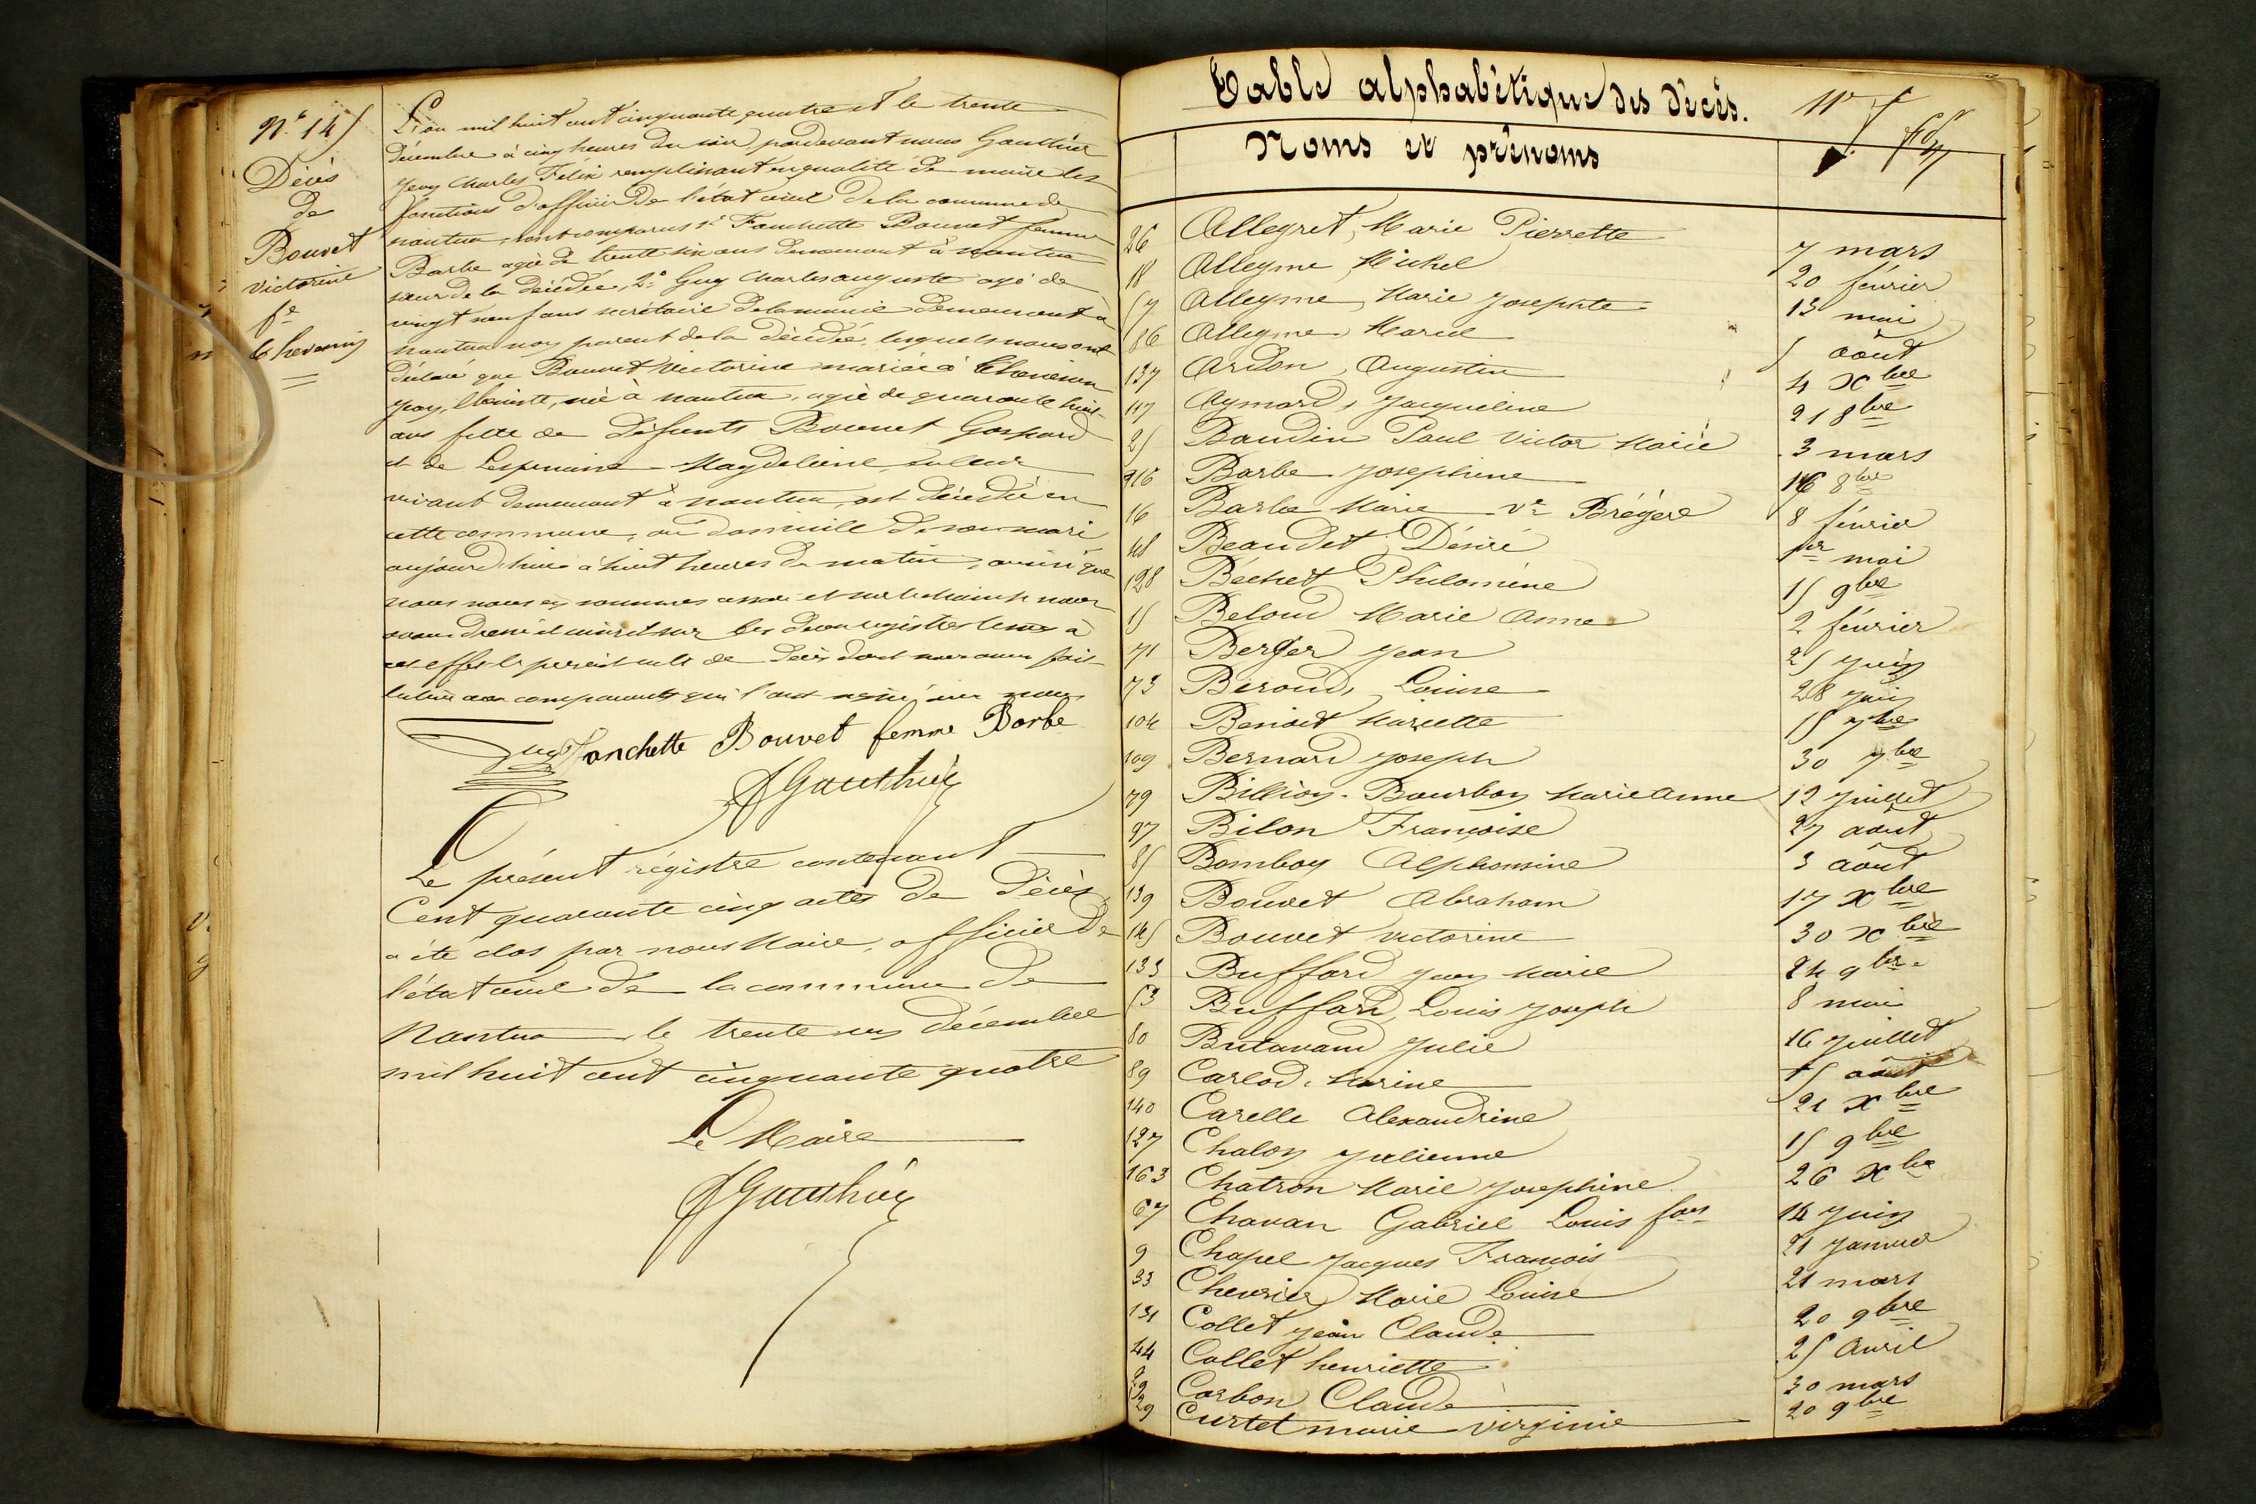 N.° 145
Décès
de
Bouvet
victorine
fe
Chevenin
L'an mil huit cent cinquante quatre et le trente
décembre à cinq heures du soir pardevant nous Gauthier
Jean Charles Félix remplissant en qualité de maire les
fonctions d'officier de l'état civil de la commune de
nantua, sont comparus 1° Fanchette Bouvet femme
Barbe agée de trente six ans demeurant à nantua
sœur de la décédée, 2° Guy Charles auguste agé de
vingt neuf ans secrétaire de la mairie demeurant à
nantua non parent de la décédée, lesquels nous ont
déclaré que Bouvet Victorine mariée à
née à nantua, agée de quarante huit
ans fille de défunts Bouvet Gaspard
et de Magdeleine
vivant demeurant à nantua, est décédée en
cette commune, au domicile de son mari
aujourd'hui à huit heures du matin, ainsi que
nous nous en sommes assuré et sur le champ nous
avons dressé et inscrit sur les deux registres tenus à
cet effet le présent acte de décès dont nous avons fait
lecture aux comparants qui l'ont signé avec nous
Fanchette Bouvet femme Barbe
Guy
F Gauthier
Le présent régistre contenant
Cent quarante cinq actes de décès
a été clos par nous Maire, officier de
l'état civil de la commune de
Nantua le trente un décembre
mil huit cent cinquante quatre
Le Maire
F Gauthier
Table alphabétique des décès.
Noms et prénoms
26 Allegret, Marie Pierrette 7 mars
18 Alleyme Michel 20 février
57 Alleyme, Marie Josephte 13 mai
86 Alleyme, Marie 5 août
137 Ardon, Augustin 4 xbre
117 Aymard, Jacqueline 21 8bre
25 Baudin Paul Victor Marie 3 mars
116 Barbe Josephine 16 8bre
16 Barbe Marie Ve Brégere 8 février
48 Beaudet Désiré 1er mai
128 Béchet Philomène 15 9bre
15 Beloud Marie Anne 2 février
71 Berger Jean 25 juin
73 Béroud, Louise 28 juin
104 Benoit Mariette 15 7bre
109 Bernard Joseph 30 7bre
79 Billion-Bourbon Marie Anne 12 juillet
97 Bilon Françoise 27 août
85 Bomboy Alphonsine 3 août
139 Bouvet Abraham 17 xbre
145 Bouvet victorine 30 xbre
133 Buffard Jean Marie 24 9bre
53 Buffard, Louis Joseph 8 mai
80 Butavand Julie 16 juillet
89 Carlod, Marine 15 août
140 Carelle Alexandrine 21 xbre
127 Chalon Julienne 15 9bre
163 Chatron Marie Josephine 26 xbre
67 Chavan Gabriel Louis fois 14 juin
9 Chapel Jacques François 21 janvier
33 Chevrier Marie Louise 21 mars
131 Collet Jean Claude 20 9bre
44 Collet henriette 25 avril
Carbon Claude 30 mars
129 Curtet marie virginie 20 9bre